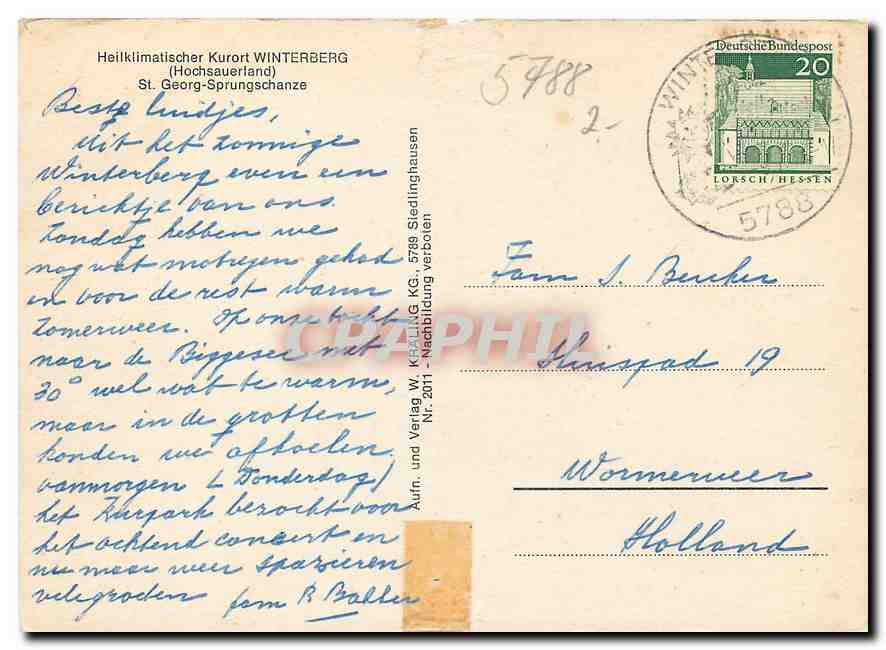 Heilklimatischer Kurort WINTERBERG
(Hochsauerland)
St. Georg-Sprungschanze
Beste luidjes,
Uit het zonnige
Winterberg even een
berichtje van ons.
Zondag hebben we
nog wat motregen gehad
en voor de rest warm
zomerweer. Op onze tocht
naar de Biggesee met
30° wel wat te warm,
maar in de grotten
konden we afkoelen.
vanmorgen (Donderdag)
het Kurpark bezocht voor
het ochtend concert en
nu maar weer spazieren
vele groeten fam R Bakker
Aufn. und Verlag W. KRALING KG., 5789 Siedlinghausen
Nr. 2011 - Nachbildung verboten
5788
2.-
Deutsche Bundespost
20
LORSCH/HESSEN
WINTERBERG
5788
Fam
Wormerveer
Holland
19
CPAPHIL